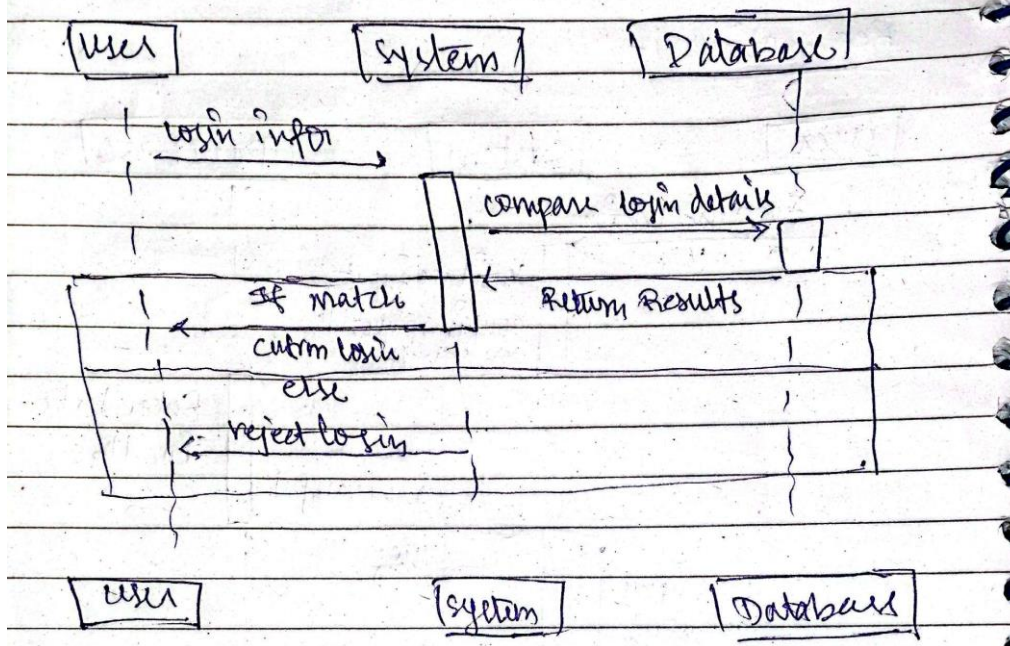 User System Database
login infor
compare login details
If match Return Results
cutrm login
else
reject login
User System Database